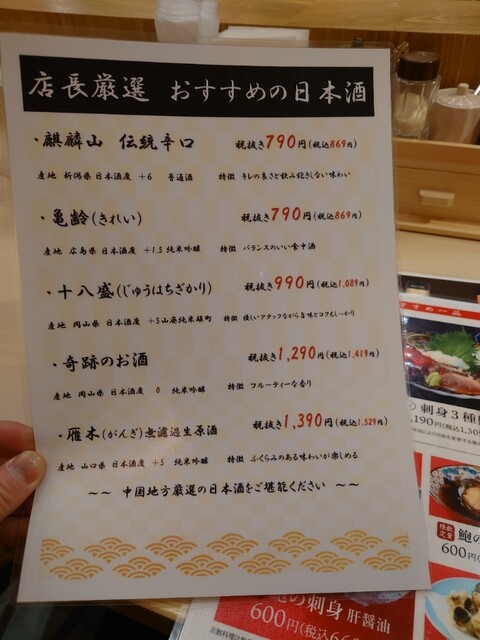 店長厳選 おすすめの日本酒
・麒麟山 伝統辛口 税抜き790円(税込869円)
産地 新潟県 日本酒度 +6 普通酒 特徴 キレの良さと飲み飽きしない味わい
・亀齢(きれい) 税抜き790円(税込869円)
産地 広島県 日本酒度 +1.5 純米吟醸 特徴 バランスのいい食中酒
・十八盛(じゅうはちざかり) 税抜き990円(税込1,089円)
産地 岡山県 日本酒度 +5 山廃純米雄町 特徴 優しいアタックながら旨味とコクもしっかり
・奇跡のお酒 税抜き1,290円(税込1,419円)
産地 岡山県 日本酒度 0 純米吟醸 特徴 フルーティーな香り
・雁木(がんぎ)無濾過生原酒 税抜き1,390円(税込1,529円)
産地 山口県 日本酒度 +5 純米吟醸 特徴 ふくらみのある味わいが楽しめる
~~ 中国地方厳選の日本酒をご堪能ください ~~
すすめ一品
刺身3種
,190円(税込1,309
数量限定
鮑の
600円(
の刺身 肝醤油
600円(税込660